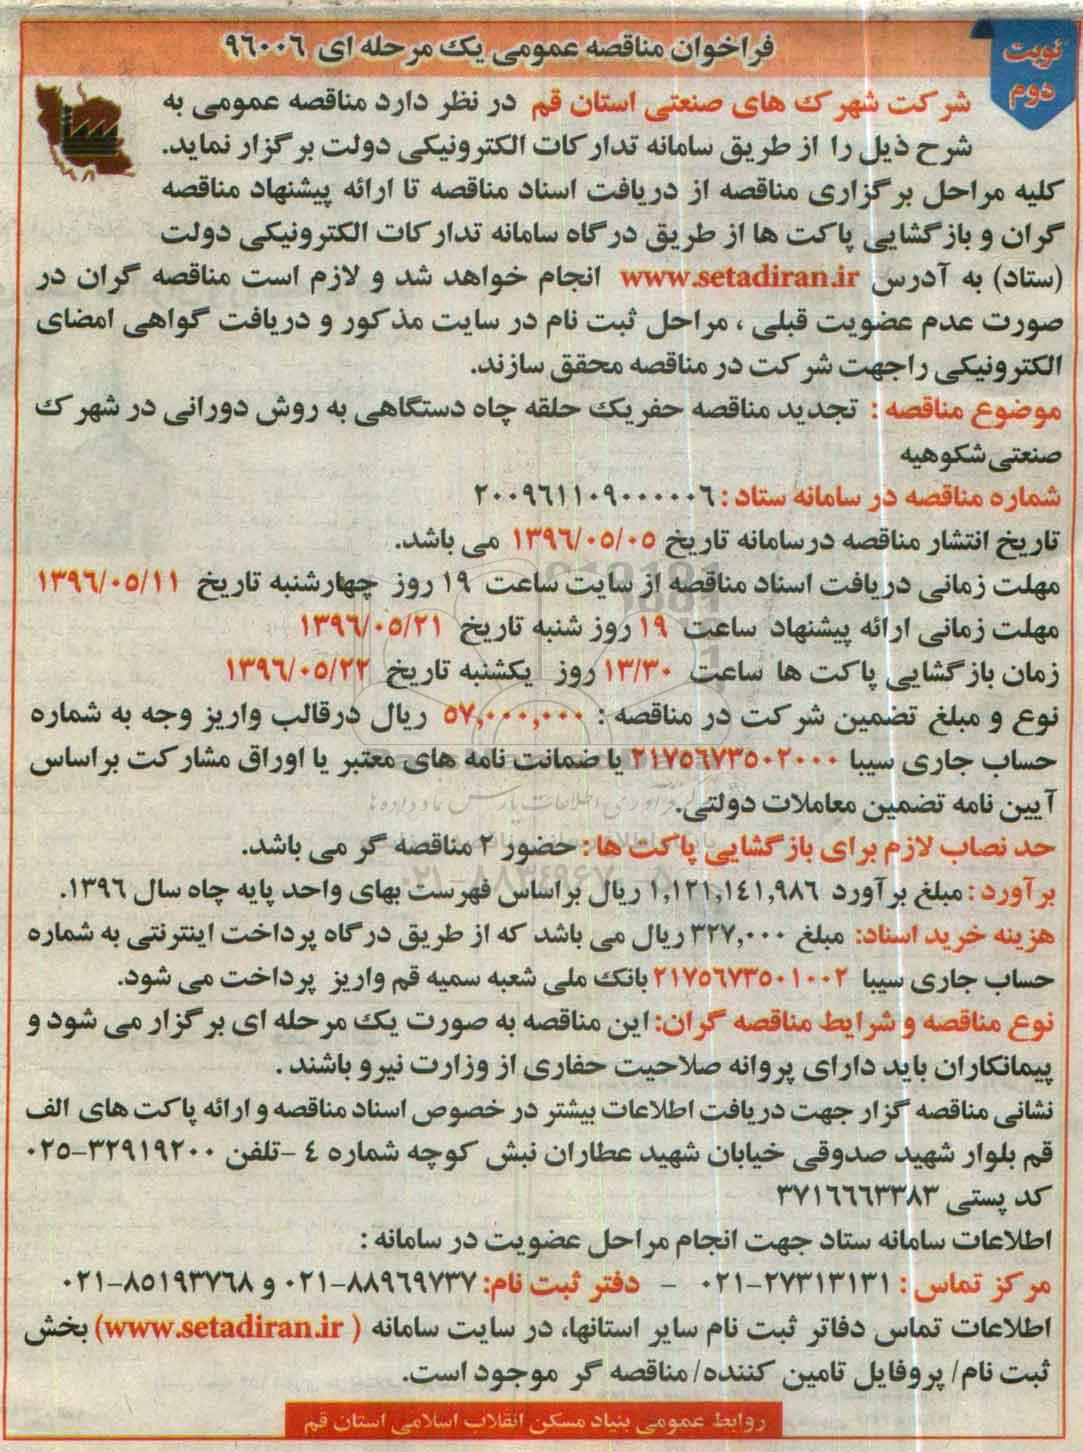 نوبت
دوم
فراخوان مناقصه عمومی یک مرحله ای ۹۶۰۰۶
شرکت شهرک های صنعتی استان قم در نظر دارد مناقصه عمومی به
شرح ذیل را از طریق سامانه تدارکات الکترونیکی دولت برگزار نماید.
کلیه مراحل برگزاری مناقصه از دریافت اسناد مناقصه تا ارائه پیشنهاد مناقصه
گران و بازگشایی پاکت ها از طریق درگاه سامانه تدارکات الکترونیکی دولت
(ستاد) به آدرس www.setadiran.ir انجام خواهد شد و لازم است مناقصه گران در
صورت عدم عضویت قبلی ، مراحل ثبت نام در سایت مذکور و دریافت گواهی امضای
الکترونیکی را جهت شرکت در مناقصه محقق سازند.
موضوع مناقصه : تجدید مناقصه حفر یک حلقه چاه دستگاهی به روش دورانی در شهرک
صنعتی شکوهیه
شماره مناقصه در سامانه ستاد : ۲۰۰۹۶۱۱۰۹۰۰۰۰۰۶
تاریخ انتشار مناقصه درسامانه تاریخ ۱۳۹۶/۰۵/۰۵ می باشد.
مهلت زمانی دریافت اسناد مناقصه از سایت ساعت ۱۹ روز چهارشنبه تاریخ ۱۳۹۶/۰۵/۱۱
مهلت زمانی ارائه پیشنهاد ساعت ۱۹ روز شنبه تاریخ ۱۳۹۶/۰۵/۲۱
زمان بازگشایی پاکت ها ساعت ۱۳/۳۰ روز یکشنبه تاریخ ۱۳۹۶/۰۵/۲۲
نوع و مبلغ تضمین شرکت در مناقصه : ۵۷,۰۰۰,۰۰۰ ریال درقالب واریز وجه به شماره
حساب جاری سیبا ۲۱۷۵۶۷۳۵۰۲۰۰۰ یا ضمانت نامه های معتبر یا اوراق مشارکت براساس
آیین نامه تضمین معاملات دولتی.
حد نصاب لازم برای بازگشایی پاکت ها : حضور ۲ مناقصه گر می باشد.
برآورد : مبلغ برآورد ۱,۱۲۱,۱۴۱,۹۸۶ ریال براساس فهرست بهای واحد پایه چاه سال ۱۳۹۶.
هزینه خرید اسناد: مبلغ ۳۲۷,۰۰۰ ریال می باشد که از طریق درگاه پرداخت اینترنتی به شماره
حساب جاری سیبا ۲۱۷۵۶۷۳۵۰۱۰۰۲ بانک ملی شعبه سمیه قم واریز پرداخت می شود.
نوع مناقصه و شرایط مناقصه گران: این مناقصه به صورت یک مرحله ای برگزار می شود و
پیمانکاران باید دارای پروانه صلاحیت حفاری از وزارت نیرو باشند .
نشانی مناقصه گزار جهت دریافت اطلاعات بیشتر در خصوص اسناد مناقصه و ارائه پاکت های الف
قم بلوار شهید صدوقی خیابان شهید عطاران نبش کوچه شماره ٤ -تلفن ۳۲۹۱۹۲۰۰-۰۲۵
کد پستی ۳۷۱۶۶۶۳۳۸۳
اطلاعات سامانه ستاد جهت انجام مراحل عضویت در سامانه :
مرکز تماس : ۲۷۳۱۳۱۳۱-۰۲۱ - دفتر ثبت نام: ۸۸۹۶۹۷۳۷-۰۲۱ و ۸۵۱۹۳۷۶۸-۰۲۱
اطلاعات تماس دفاتر ثبت نام سایر استانها، در سایت سامانه (www.setadiran.ir) بخش
ثبت نام/ پروفایل تامین کننده/ مناقصه گر موجود است.
روابط عمومی بنیاد مسکن انقلاب اسلامی استان قم